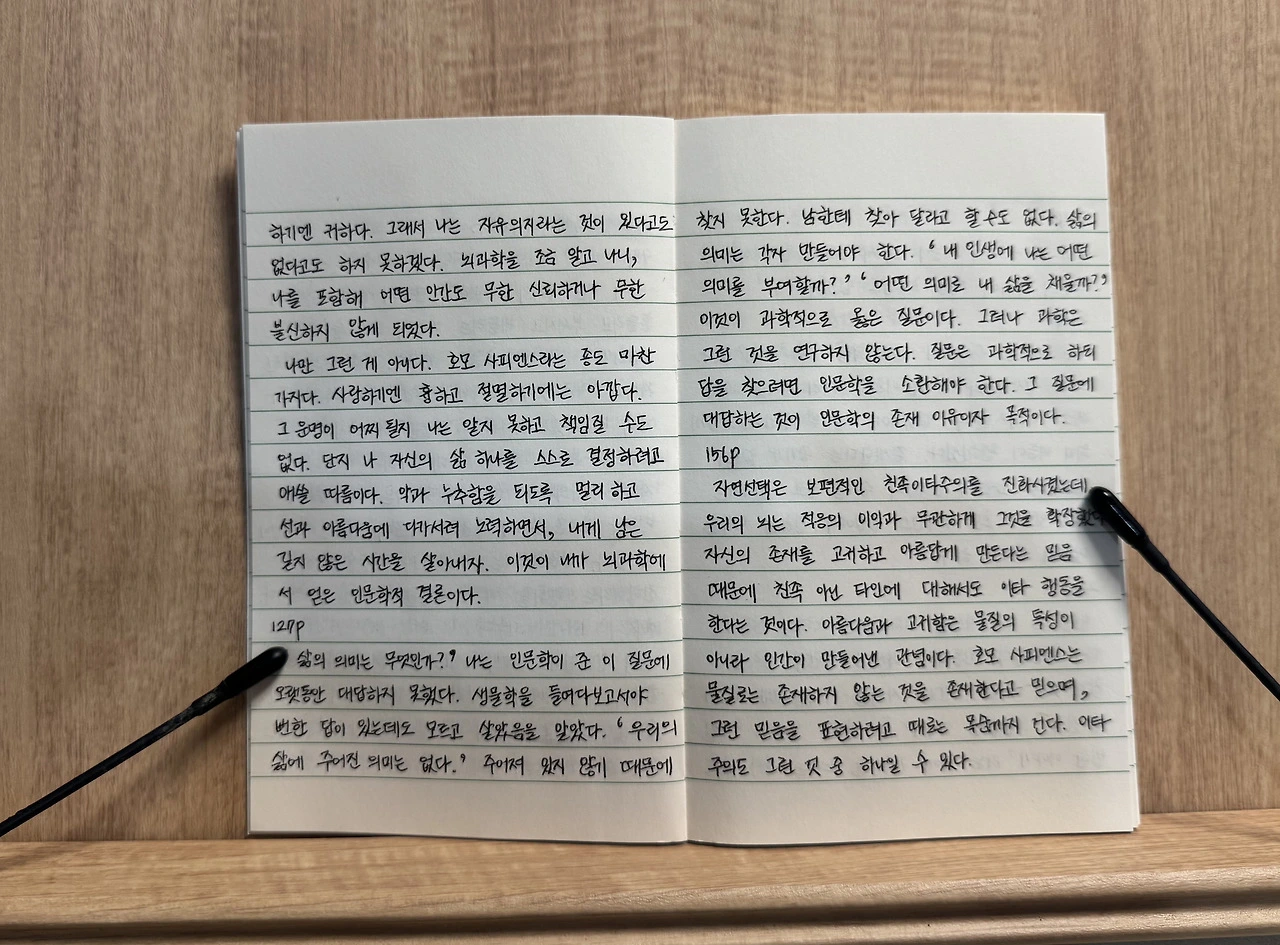 하기엔 귀하다. 그래서 나는 자유의지라는 것이 있다고도
없다고도 하지 못하겠다. 뇌과학을 조금 알고 나니,
나를 포함해 어떤 인간도 무한 신뢰하거나 무한
불신하지 않게 되었다.
나만 그런 게 아니다. 호모 사피엔스라는 종도 마찬
가지다. 사랑하기엔 흉하고 절멸하기에는 아깝다.
그 운명이 어찌 될지 나는 알지 못하고 책임질 수도
없다. 단지 나 자신의 삶 하나를 스스로 결정하려고
애쓸 따름이다. 악과 누추함을 되도록 멀리 하고
선과 아름다움에 다가서려 노력하면서, 내게 남은
길지 않은 시간을 살아내자. 이것이 내가 뇌과학에
서 얻은 인문학적 결론이다.
127p
삶의 의미는 무엇인가?' 나는 인문학이 준 이 질문에
오랫동안 대답하지 못했다. 생물학을 들여다보고서야
뻔한 답이 있는데도 모르고 살았음을 알았다. '우리의
삶에 주어진 의미는 없다.' 주어져 있지 않기 때문에
찾지 못한다. 남한테 찾아 달라고 할 수도 없다. 삶의
의미는 각자 만들어야 한다. '내 인생에 나는 어떤
의미를 부여할까?' '어떤 의미로 내 삶을 채울까?'
이것이 과학적으로 옳은 질문이다. 그러나 과학은
그런 것을 연구하지 않는다. 질문은 과학적으로 하되
답을 찾으려면 인문학을 소환해야 한다. 그 질문에
대답하는 것이 인문학의 존재 이유이자 목적이다.
156p
자연선택은 보편적인 친족이타주의를 진화시켰는데
우리의 뇌는 적응의 이익과 무관하게 그것을 확장했다
자신의 존재를 고귀하고 아름답게 만든다는 믿음
때문에 친족 아닌 타인에 대해서도 이타 행동을
한다는 것이다. 아름다움과 고귀함은 물질의 독성이
아니라 인간이 만들어낸 관념이다. 호모 사피엔스는
물질로는 존재하지 않는 것을 존재한다고 믿으며,
그런 믿음을 표현하려고 때로는 목숨까지 건다. 이타
주의도 그런 것 중 하나일 수 있다.